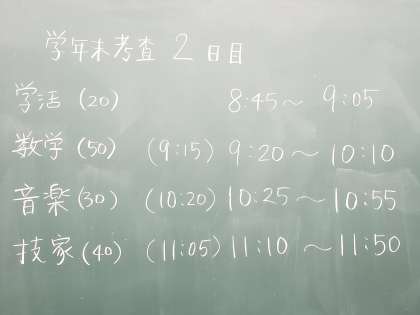 学年末考査 2日目
学活 (20) 8:45～ 9:05
数学 (50) (9:15) 9:20～10:10
音楽 (30) (10:20) 10:25～10:55
技家 (40) (11:05) 11:10～11:50